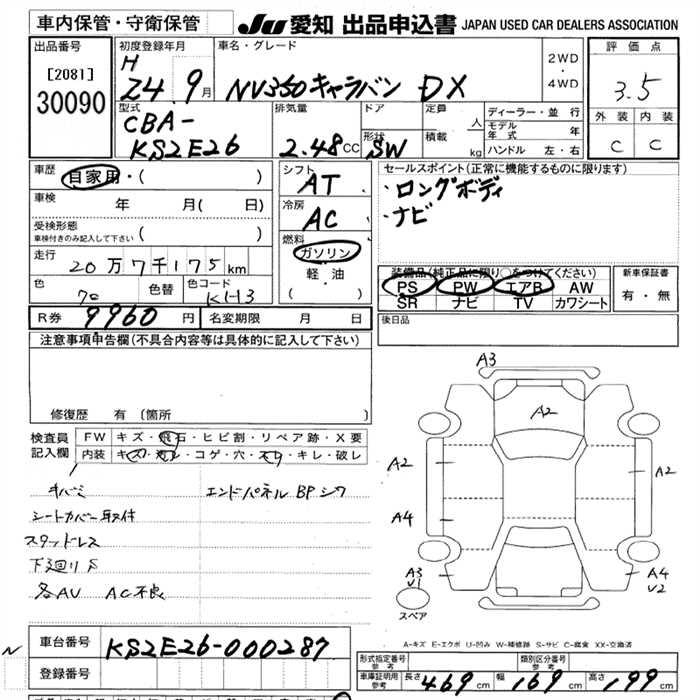 車内保管・守衛保管
JU 愛知 出品申込書 JAPAN USED CAR DEALERS ASSOCIATION
出品番号
[2081]
30090
初度登録年月
H
24. 9月
車名・グレード
NV350キャラバン DX
2WD
・
4WD
評価点
3.5
外装 内装
C C
型式
CBA-
KS2E26
排気量
2.48CC
ドア
形状
SW
定員 人
積載 kg
ディーラー・並行
モデル年式 年
ハンドル 左・右
車歴 自家用・( )
車検 年 月( 日)
受検形態
車検付きのみ記入して下さい ( )
走行
20万7千175km
色 色替 色コード
K113
シフト
AT
冷房
AC
燃料
ガソリン
軽・油
( )
セールスポイント(正常に機能するものに限ります)
・ロングボディ
・ナビ
装備品(純正品に限り○をつけてください)
PS PW エアB AW
SR ナビ TV カワシート
新車保証書
有・無
R券 9960円 名変期限 月 日
後日品
注意事項申告欄(不具合内容等は具体的に記入して下さい)
修復歴 有 〔箇所 〕
検査員
記入欄
FW キズ・飛石・ヒビ割・リペア跡・X要
内装 キズ・汚レ・コゲ・穴・スレ・キレ・破レ
キバミ エンドパネル BP シワ
シートカバー取付
スタッドレス
下廻りS
各AU AC不良
A3
A2
A2
A2
A4
A3
V1
A4
V2
スペア
A-キズ E-エクボ U-凹み W-補修跡 S-サビ C-腐食 XX-交換済
N
車台番号 KS2E26-000287
登録番号
形式指定番号
参考
類別区分番号
参考
車庫証明用
参考
長さ 469cm 幅 169cm 高さ 199cm